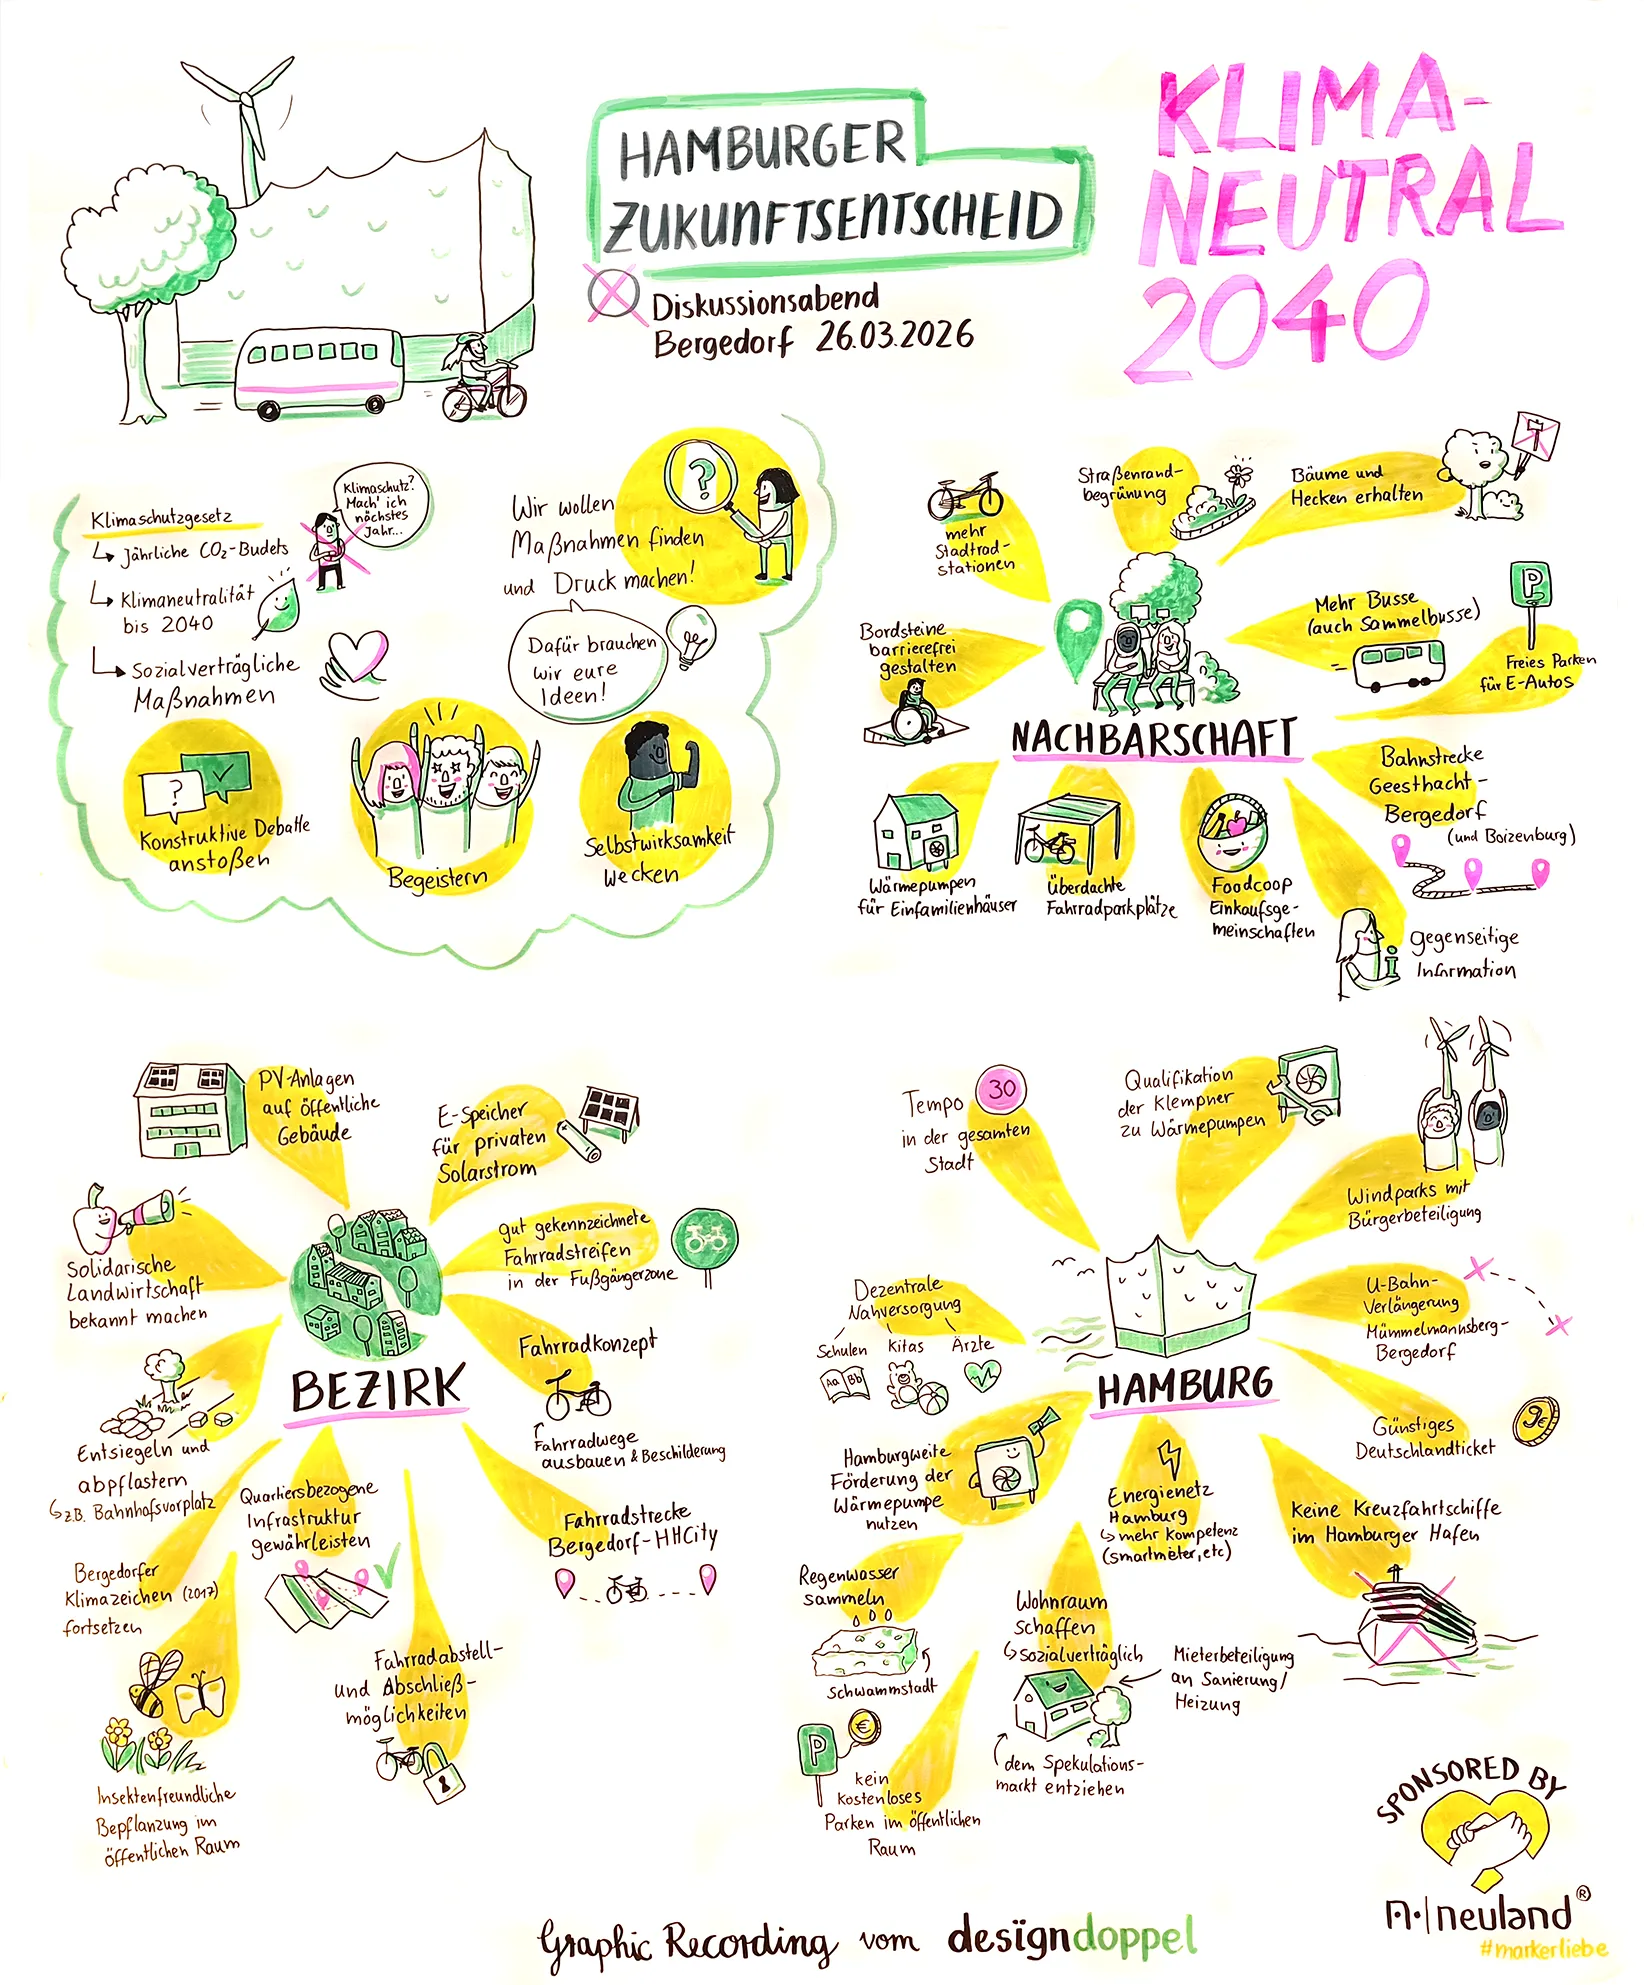 HAMBURGER
ZUKUNFTSENTSCHEID
Diskussionsabend
Bergedorf 26.03.2026
KLIMA-
NEUTRAL
2040
Klimaschutzgesetz
↳ Jährliche CO₂-Budets
↳ Klimaneutralität
bis 2040
↳ Sozialverträgliche
Maßnahmen
Klimaschutz?
Mach' ich
nächstes
Jahr...
Wir wollen
Maßnahmen finden
und Druck machen!
?
Dafür brauchen
wir eure
Ideen!
?
Konstruktive Debatte
anstoßen
Begeistern
Selbstwirksamkeit
wecken
mehr
Stadtrad-
stationen
Straßenrand-
begrünung
Bäume und
Hecken erhalten
Bordsteine
barrierefrei
gestalten
Mehr Busse
(auch Sammelbusse)
P
Freies Parken
für E-Autos
NACHBARSCHAFT
Bahnstrecke
Geesthacht-
Bergedorf
(und Boizenburg)
Wärmepumpen
für Einfamilienhäuser
Überdachte
Fahrradparkplätze
Foodcoop
Einkaufsge-
meinschaften
i
gegenseitige
Information
PV-Anlagen
auf Öffentliche
Gebäude
E-Speicher
für privaten
Solarstrom
Solidarische
Landwirtschaft
bekannt machen
gut gekennzeichnete
Fahrradstreifen
in der Fußgängerzone
BEZIRK
Fahrradkonzept
Fahrradwege
ausbauen & Beschilderung
Entsiegeln und
abpflastern
↳ z.B. Bahnhofsvorplatz
Quartiersbezogene
Infrastruktur
gewährleisten
Fahrradstrecke
Bergedorf-HHCity
Bergedorfer
Klimazeichen (2017)
fortsetzen
Fahrradabstell-
und Abschließ-
möglichkeiten
Insektenfreundliche
Bepflanzung im
öffentlichen Raum
Tempo 30
in der gesamten
Stadt
Qualifikation
der Klempner
zu Wärmepumpen
Windparks mit
Bürgerbeteiligung
Dezentrale
Nahversorgung
Schulen Kitas Ärzte
Aa Bb
U-Bahn-
Verlängerung
Mümmelmannsberg-
Bergedorf
HAMBURG
Günstiges
Deutschlandticket
9€
Hamburgweite
Förderung der
Wärmepumpe
nutzen
Energienetz
Hamburg
↳ mehr Kompetenz
(smartmeter, etc)
Keine Kreuzfahrtschiffe
im Hamburger Hafen
Regenwasser
sammeln
Schwammstadt
Wohnraum
schaffen
↳ Sozialverträglich
Mieterbeteiligung
an Sanierung/
Heizung
dem Spekulations-
markt entziehen
P
€
kein
kostenloses
Parken im öffentlichen
Raum
SPONSORED BY
neuland®
#markerliebe
Graphic Recording vom desïgndoppel